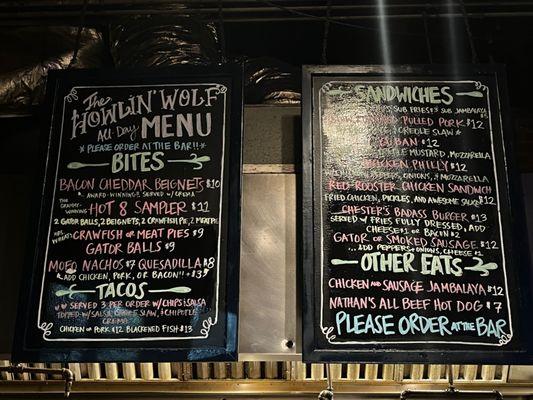 The
HOWLIN' WOLF
ALL-DAY MENU
*PLEASE ORDER AT THE BAR!!*
BITES
BACON CHEDDAR BEIGNETS $10
AWARD-WINNING SERVED W/ CREMA
THE GRAMMY-WINNING HOT 8 SAMPLER $11
2 GATOR BALLS, 2 BEIGNETS, 2 CRAWFISH PIES, 2 MEAT PIES
CRAWFISH OR MEAT PIES $9
GATOR BALLS $9
MOFO NACHOS $7 QUESADILLA $8
ADD CHICKEN, PORK, OR BACON!! $3
TACOS
SERVED 3 PER ORDER W/ CHIPS & SALSA
TOPPED W/ SALSA, SLAW, & CHIPOTLE
CREMA
CHICKEN OR PORK $12 BLACKENED FISH $13
SANDWICHES
SUB FRIES SUB JAMBALAYA
PULLED PORK $12
CREOLE SLAW
CUBAN $12
MUSTARD, MOZZARELLA
CHICKEN PHILLY $12
ONIONS, & MOZZARELLA
RED ROOSTER CHICKEN SANDWICH
FRIED CHICKEN, PICKLES, AND AWESOME SAUCE $12
CHESTER'S BADASS BURGER $13
SERVED W/ FRIES FULLY DRESSED, ADD
CHEESE $1 OR BACON $2
GATOR OR SMOKED SAUSAGE $12
...ADD PEPPERS & ONIONS, CHEESE $1
OTHER EATS
CHICKEN AND SAUSAGE JAMBALAYA $12
NATHAN'S ALL BEEF HOT DOG $7
PLEASE ORDER AT THE BAR